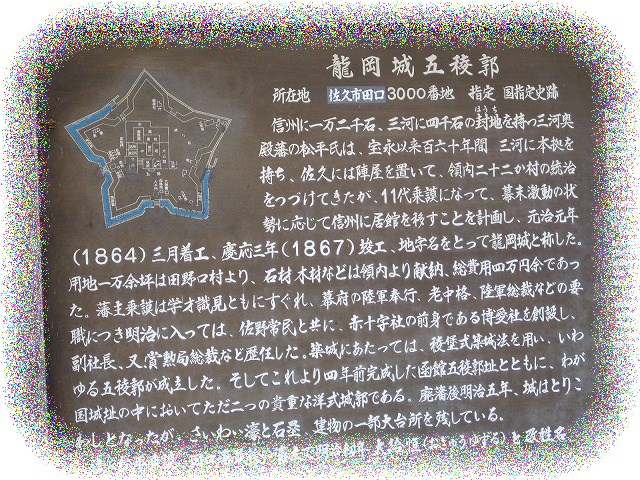 龍岡城五稜郭
所在地 佐久市田口3000番地 指定 国指定史跡
信州に一万二千石、三河に四千石の封地を持つ三河奥
ほうち
殿藩の松平氏は、宝永以来百六十年間 三河に本拠を
持ち、佐久には陣屋を置いて、領内二十二か村の統治
をつづけてきたが、11代乗謨になって、幕末激動の状
勢に応じて信州に居館を移すことを計画し、元治元年
(1864)三月着工、慶応三年(1867)竣工、地字名をとって龍岡城と称した。
用地一万余坪は田野口村より、石材木材などは領内より献納、総費用四万円余であっ
た。藩主乗謨は学才識見ともにすぐれ、幕府の陸軍奉行、老中格、陸軍総裁などの要
職につき明治に入っては、佐野常民と共に、赤十字社の前身である博愛社を創設し、
副社長、又、賞勲局総裁など歴任した。築城にあたっては、稜堡式築城法を用い、いわ
ゆる五稜郭が成立した。そしてこれより四年前完成した函館五稜郭址とともに、わが
国城址の中においてただ二つの貴重な洋式城郭である。廃藩後明治五年、城はとりこ
わしとなったが、さいわい濠と石塁、建物の一部大台所を残している。
大給恒(おぎゅうゆずる)と改姓名